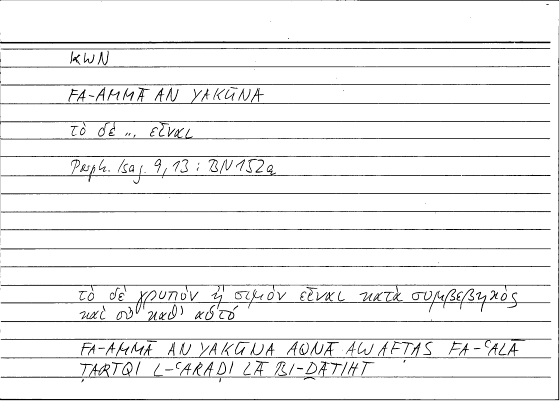 KWN
FA-AMMĀ AN YAKŪNA
τὸ δέ ... εἶναι
Porph. Isag. 9,13 : BN152a
τὸ δὲ γρυπὸν ἢ σιμὸν εἶναι κατὰ συμβεβηκός
καὶ οὐ καθ' αὑτό
FA-AMMĀ AN YAKŪNA AQNĀ AW AFṬAS FA-ʿALĀ
ṬARĪQI L-ʿARAḌI LĀ BI-ḎĀTIHĪ